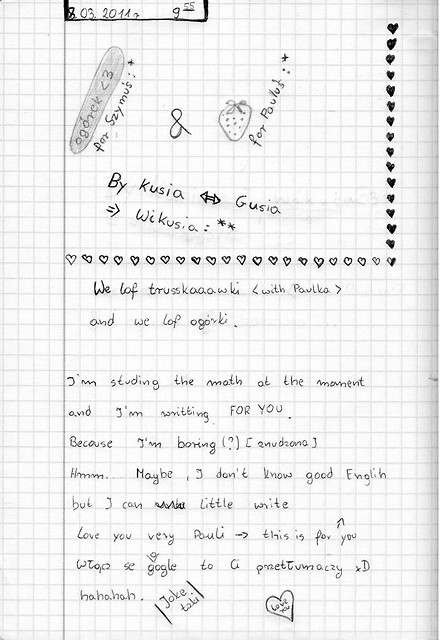 8.03.2011r 9 55
ogórek <3
for Szymuś :*
&
for Pauluś :*
By Kusia ⇔ Gusia
=> Wikusia : **
We lof trusskaaawki <with Paulka>
and we lof ogórki.
I'm studing the math at the moment
and I'm writting FOR YOU.
Because I'm boring (?) [znudzona]
Hmm... Maybe, I don't know good Englih
but I can little write
Love you very Pauli -> this is for you
Włącz se gogle to Ci przetłumaczy xD
hahahah. Joke
taki
Love
you